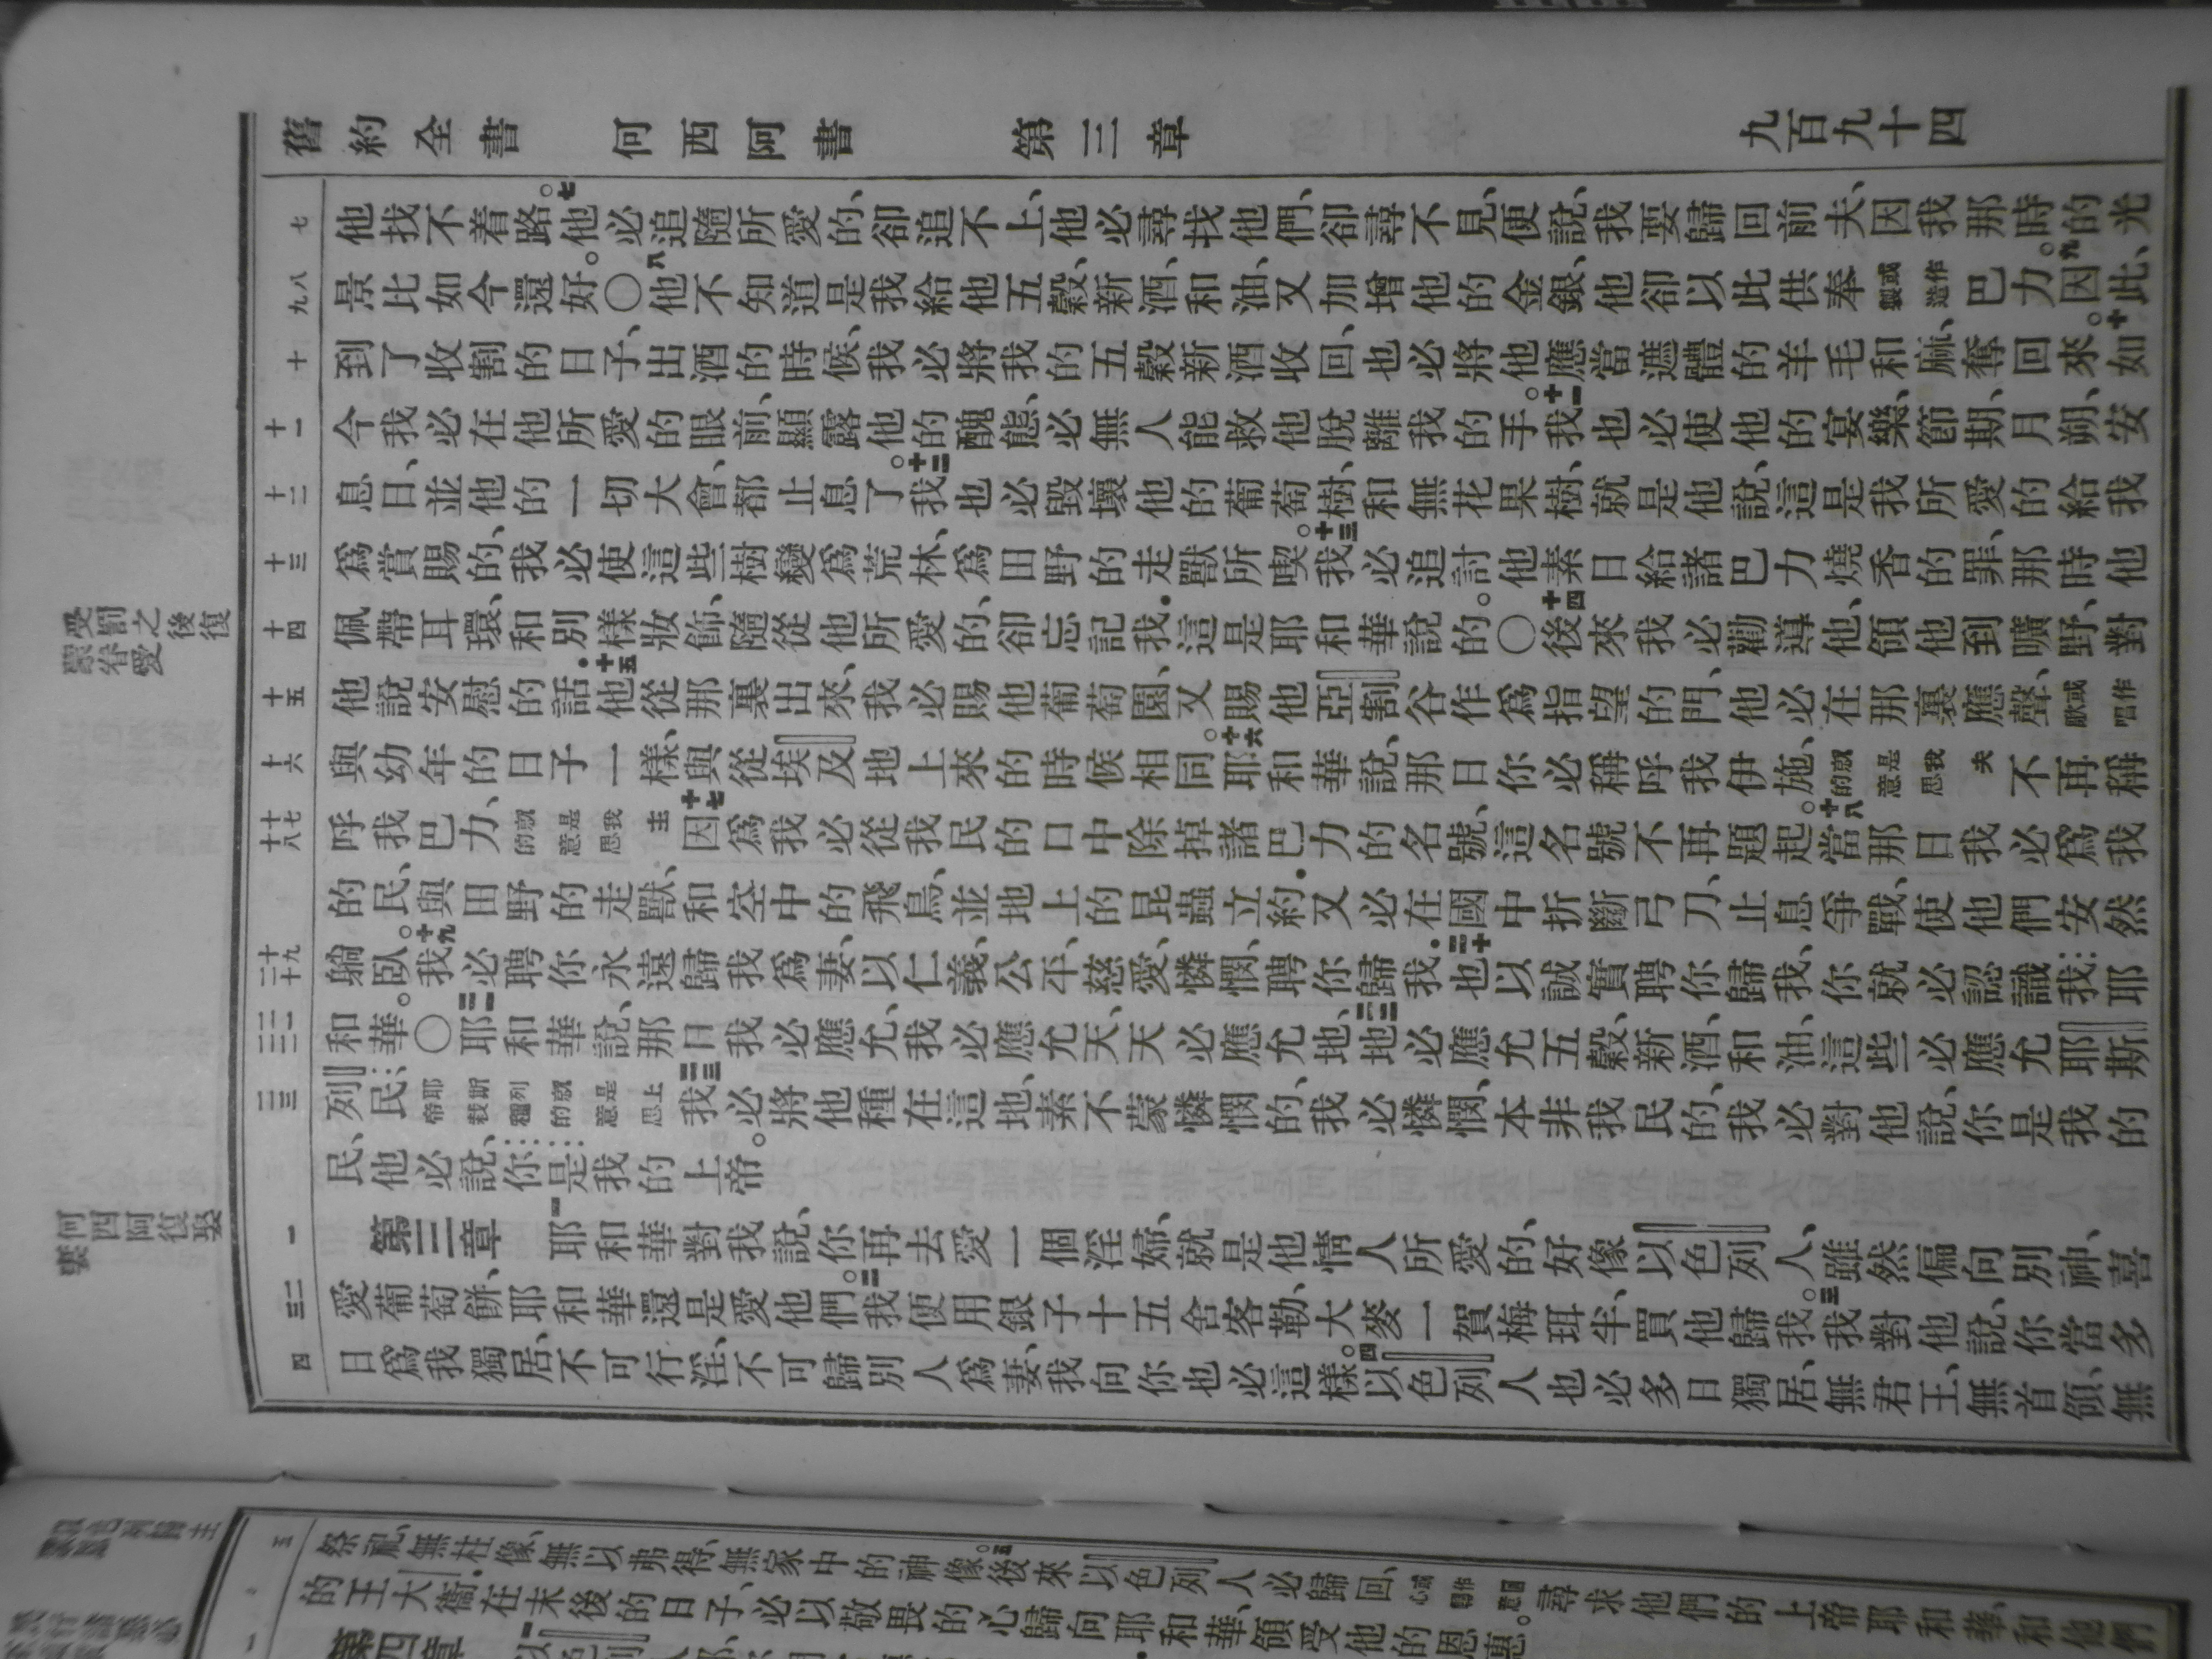 舊約全書 何西阿書 第三章 九百九十四
七
他找不着路。七他必追隨所愛的、卻追不上、他必尋找他們、卻尋不見、便說、我要歸回前夫、因我那時的光
九八
景比如今還好。〇八他不知道是我給他五穀、新酒、和油、又加增他的金銀、他卻以此供奉或作製造巴力。九因此、
十
到了收割的日子、出酒的時候、我必將我的五穀新酒收回、也必將他應當遮體的羊毛和麻、奪回來。十如
十一
今我必在他所愛的眼前、顯露他的醜態、必無人能救他脫離我的手。十一我也必使他的宴樂、節期、月朔、安
十二
息日、並他的一切大會、都止息了。十二我也必毀壞他的葡萄樹、和無花果樹、就是他說、這是我所愛的給我
十三
爲賞賜的、我必使這些樹變爲荒林、爲田野的走獸所喫。十三我必追討他素日給諸巴力燒香的罪、那時他
受罰之後復蒙眷愛
十四
佩帶耳環、和別樣妝飾、隨從他所愛的、卻忘記我．這是耶和華說的。〇十四後來我必勸導他、領他到曠野、對
十五
他說安慰的話．十五他從那裏出來、我必賜他葡萄園、又賜他亞割谷作爲指望的門、他必在那裏應聲、或作歌唱
十六
與幼年的日子一樣、與從埃及地上來的時候相同。十六耶和華說、那日你必稱呼我伊施、就是我夫的意思不再稱
十八十七
呼我巴力、就是我主的意思十七因爲我必從我民的口中除掉諸巴力的名號、這名號不再題起。十八當那日我必爲我
的民、與田野的走獸、和空中的飛鳥、並地上的昆蟲立約．又必在國中折斷弓刀、止息爭戰、使他們安然
二十十九
躺臥。十九我必聘你永遠歸我爲妻、以仁義、公平、慈愛、憐憫、聘你歸我．二十也以誠實聘你歸我、你就必認識我耶
二二二一
和華。〇二一耶和華說、那日我必應允、我必應允天、天必應允地、二二地必應允五穀、新酒、和油、這些必應允耶斯
二三
列民耶斯列就是上帝栽種的意思二三我必將他種在這地、素不蒙憐憫的、我必憐憫、本非我民的、我必對他說、你是我的
民、他必說、你是我的上帝。
何西阿復娶妻
一
第三章 一耶和華對我說、你再去愛一個淫婦、就是他情人所愛的、好像以色列人、雖然偏向別神、喜
三二
愛葡萄餅、耶和華還是愛他們。二我便用銀子十五舍客勒、大麥一賀梅珥半、買他歸我。三我對他說、你當多
四
日爲我獨居、不可行淫、不可歸別人爲妻、我向你也必這樣。四以色列人也必多日獨居、無君王、無首領、無
五
祭祀、無柱像、無以弗得、無家中的神像。五後來以色列人必歸回、尋求他們的上帝耶和華、和他們
的王大衛．在末後的日子、必以敬畏的心歸向耶和華、領受他的恩惠。
第四章